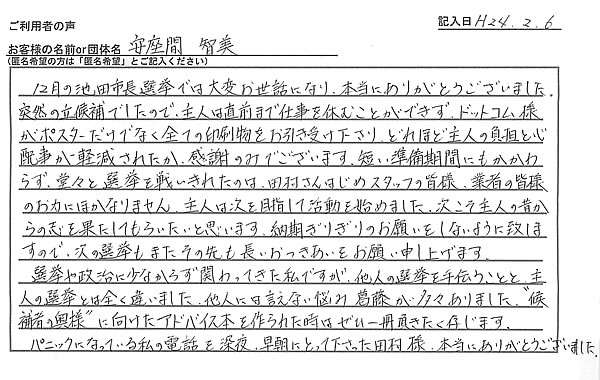 ご利用者の声
記入日 H24.2.6
お客様の名前or団体名 守座間 智美
(匿名希望の方は「匿名希望」とご記入ください)
12月の池田市長選挙では大変お世話になり、本当にありがとうございました。
突然の立候補でしたので、主人は直前まで仕事を休むことができず、ドットコム様
がポスターだけでなく全ての印刷物をお引き受け下さり、どれほど主人の負担と心
配事が軽減されたか、感謝のみでございます。短い準備期間にもかかわ
らず、堂々と選挙を戦いきれたのは、田村さんはじめスタッフの皆様、業者の皆様
のお力にほかなりません。主人は次を目指して活動を始めました。次こそ主人の昔か
らの志を果たしてもらいたいと思います。納期ぎりぎりのお願いをしないように致しま
すので、次の選挙もまたその先も長いおつきあいをお願い申し上げます。
選挙や政治に少なからず関わってきた私ですが、他人の選挙を手伝うことと、主
人の選挙とは全く違いました。他人には言えない悩み、葛藤が多々ありました。"候
補者の奥様"に向けたアドバイス本を作られた時はぜひ一冊頂きたく存じます。
パニックになっている私の電話を深夜、早朝にとって下さった田村様、本当にありがとうございました。